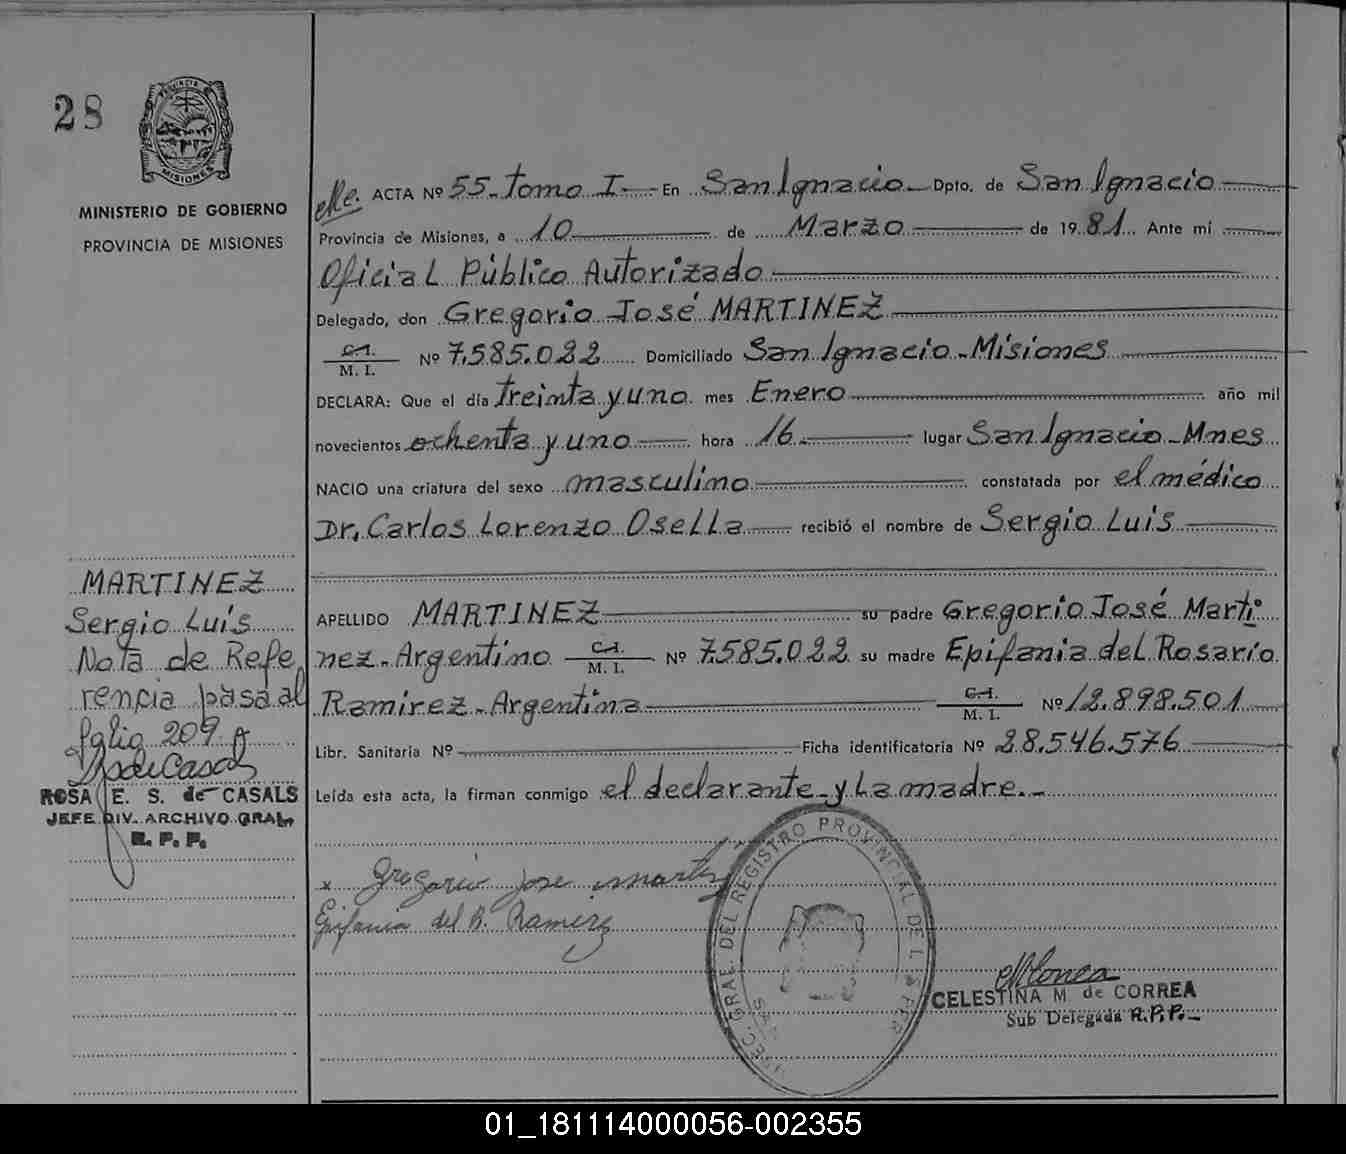 28
PROVINCIA
MISIONES
MINISTERIO DE GOBIERNO
PROVINCIA DE MISIONES
ACTA Nº 55-Tomo I- En San Ignacio- Dpto. de San Ignacio
Provincia de Misiones, a 10 de Marzo de 1981 Ante mi
Oficial Público Autorizado
Delegado, don Gregorio José MARTINEZ
C.I.
M. I. Nº 7.585.022 Domiciliado San Ignacio-Misiones
DECLARA: Que el día treinta y uno mes Enero año mil
novecientos ochenta y uno hora 16 lugar San Ignacio-Mnes
NACIO una criatura del sexo masculino constatada por el médico
Dr. Carlos Lorenzo Osella recibió el nombre de Sergio Luis
MARTINEZ
Sergio Luis
Nota de Refe
rencia pasa al
folio 209
ROSA E. S. de CASALS
JEFE DIV. ARCHIVO GRAL.
R. P. P.
APELLIDO MARTINEZ su padre Gregorio José Marti
nez-Argentino C.I.
M. I. Nº 7.585.022 su madre Epifania del Rosario
Ramirez-Argentina C.I.
M. I. Nº 12.898.501
Libr. Sanitaria Nº Ficha identificatoria Nº 28.546.576
Leída esta acta, la firman conmigo el declarante y la madre.-
x Gregorio jose martinez
Epifania del R. Ramirez
GRAL. DEL REGISTRO PROVINCIAL DE LAS PER
SAN
CELESTINA M de CORREA
Sub Delegada R.P.P.-
01_181114000056-002355